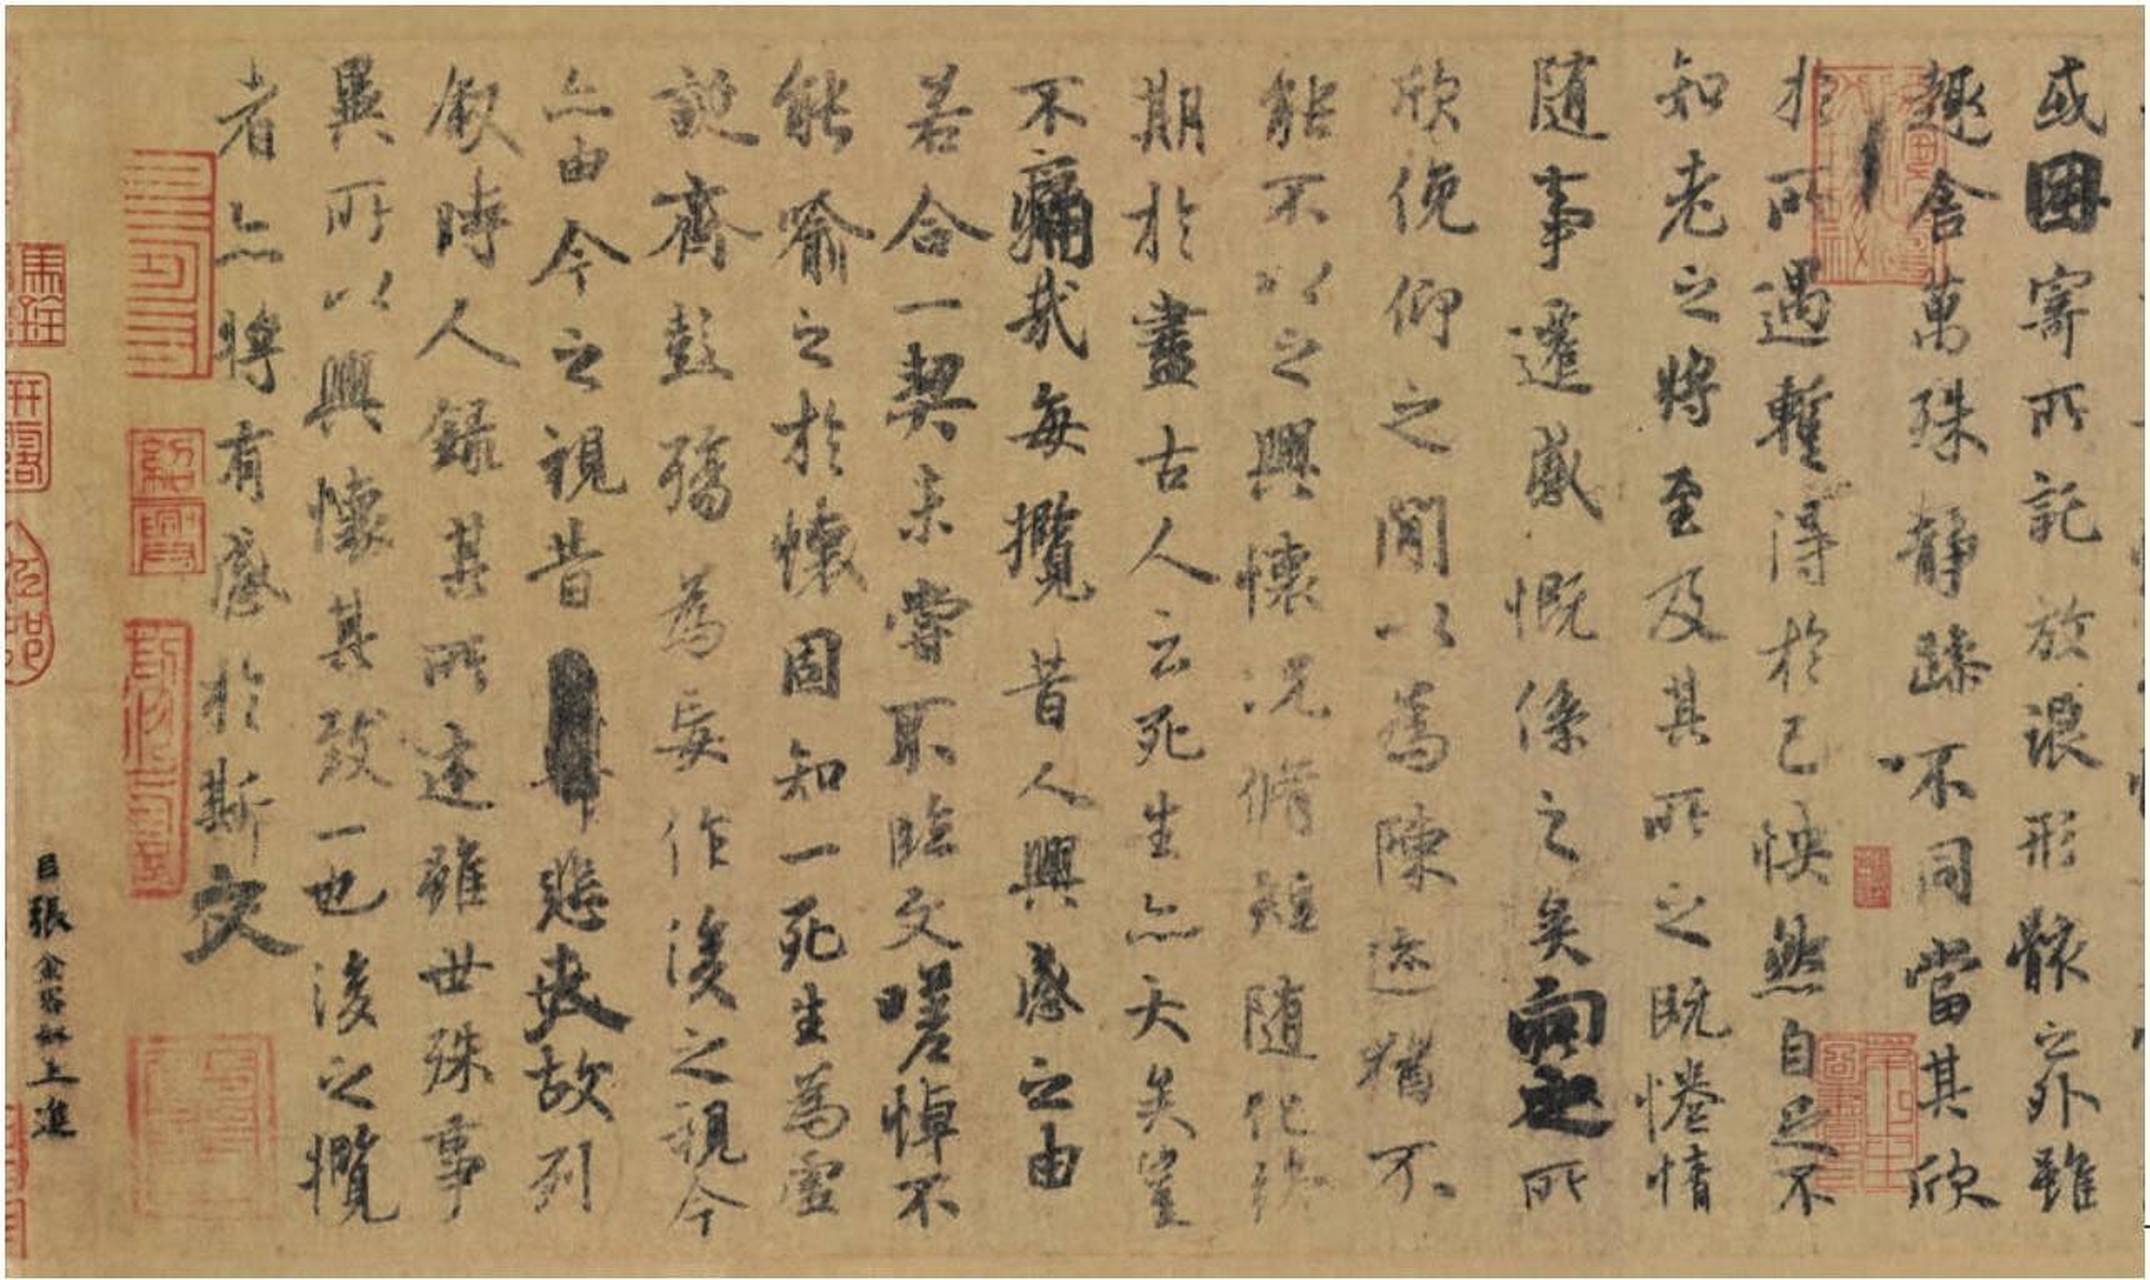 或因寄所託放浪形骸之外雖
趣舍萬殊靜躁不同當其欣
於所遇暫得於己怏然自足不
知老之將至及其所之既惓情
隨事遷感慨係之矣向之所
欣俛仰之閒以為陳迹猶不
能不以之興懷況脩短隨化終
期於盡古人云死生亦大矣豈
不痛哉每攬昔人興感之由
若合一契未嘗不臨文嗟悼不
能喻之於懷固知一死生為虛
誕齊彭殤為妄作後之視今
亦由今之視昔悲夫故列
敘時人錄其所述雖世殊事
異所以興懷其致一也後之攬
者亦將有感於斯文
紹興
臣張金界奴上進